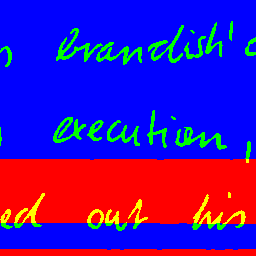 brandish'd
execution,
ed out his